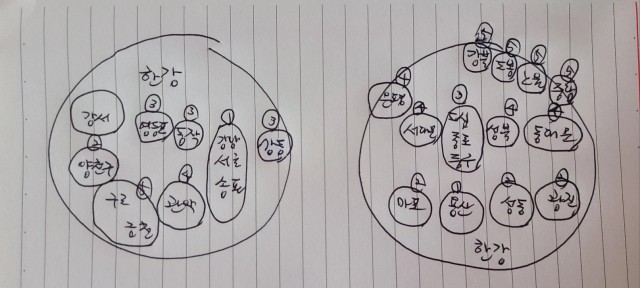 한강
강서
③
영등포
③
동작
①
강남
서초
송파
③
강동
②
양천구
구로
금천
④
관악
⑤
강북
⑤
도봉
⑤
노원
⑤
중랑
④
은평
④
서대문
③
도심
종로
중구
④
성북
④
동대문
②
마포
①
용산
②
성동
②
광진
한강